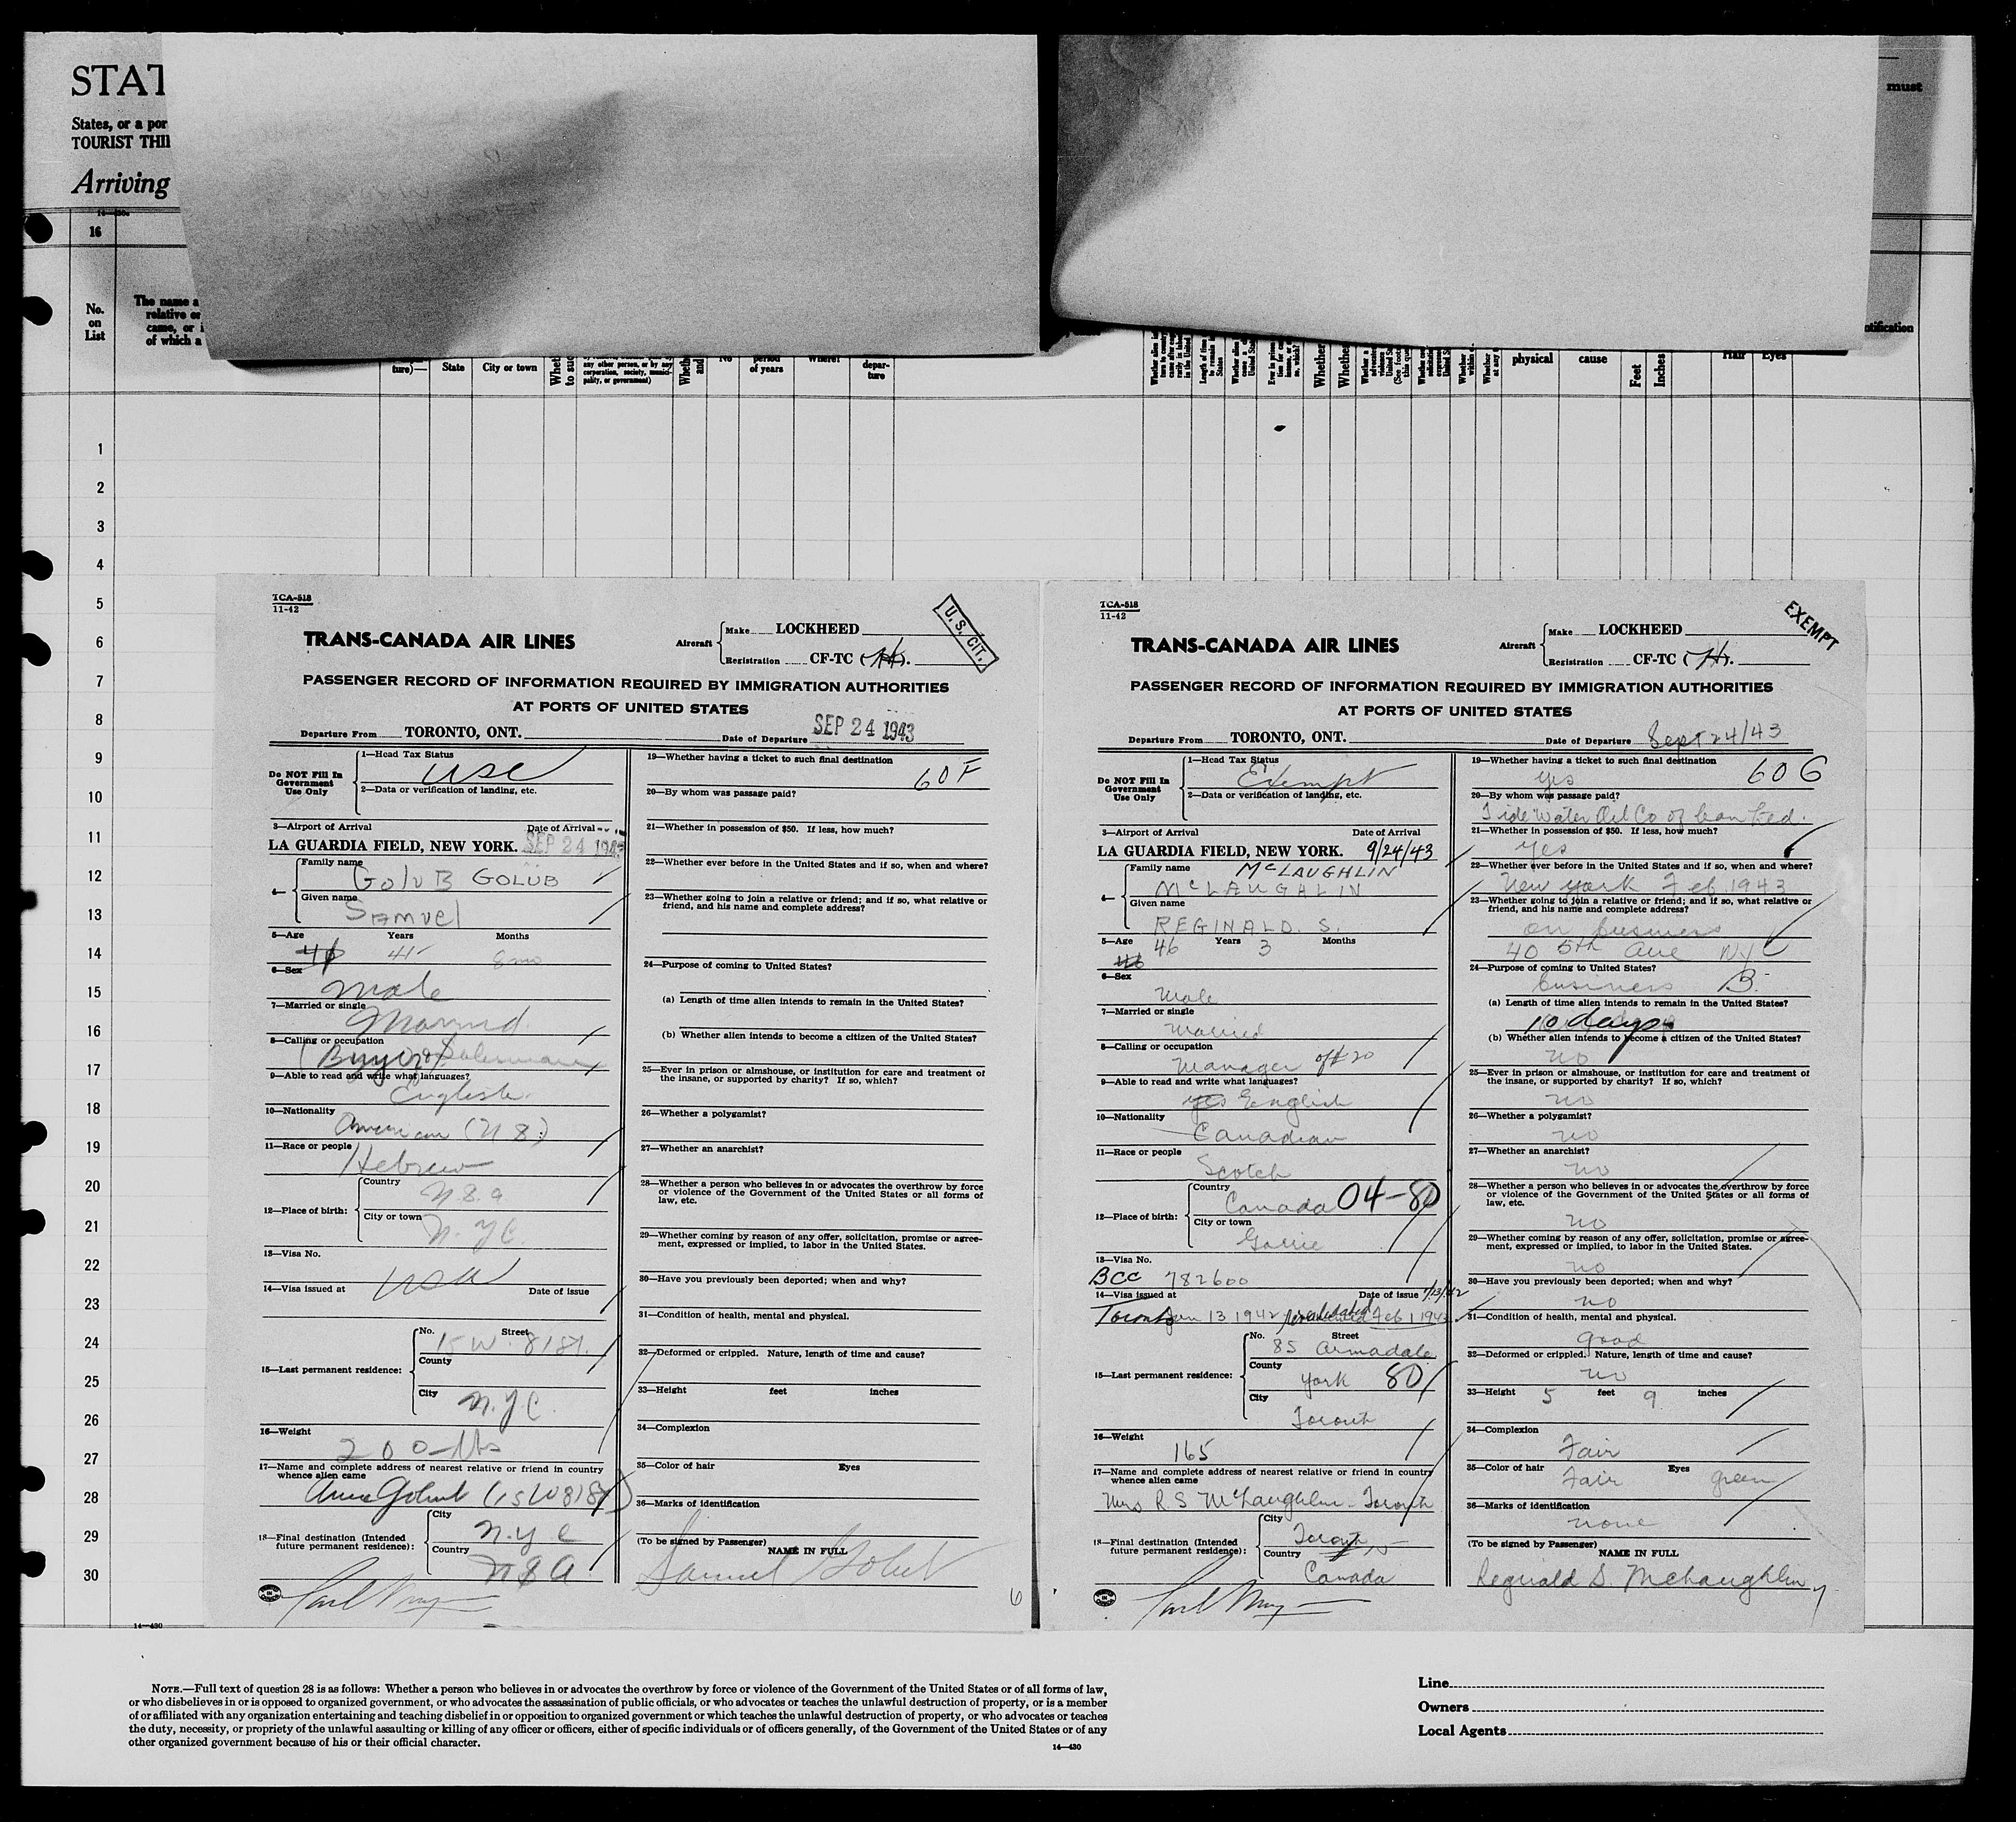 STAT
States, or a por
TOURIST THI
Arriving
must
14-430a
16
No.
on
List
The name a
relative or
came, or i
of which a
ture)—
State
City or town
any other person, or by any
corporation, society, munici-
pality, or government)
No
period
of years
Where?
depar-
ture
physical
cause
Feet
Inches
Hair
Eyes
1
2
3
4
5
6
7
8
9
10
11
12
13
14
15
16
17
18
19
20
21
22
23
24
25
26
27
28
29
30
TCA-518
11-42
TRANS-CANADA AIR LINES
Aircraft
Make LOCKHEED
Registration CF-TC (H).
U. S. CIT.
PASSENGER RECORD OF INFORMATION REQUIRED BY IMMIGRATION AUTHORITIES
AT PORTS OF UNITED STATES
Departure From TORONTO, ONT. Date of Departure SEP 24 1943
Do NOT Fill In
Government
Use Only
1—Head Tax Status
USC
2—Data or verification of landing, etc.
3—Airport of Arrival Date of Arrival
LA GUARDIA FIELD, NEW YORK. SEP 24 1943
4— Family name
GoluB GOLUB
Given name
SAMUEl
5—Age Years Months
41 8 mo
6—Sex
Male
7—Married or single
Married
8—Calling or occupation
Buyer & Salesman
9—Able to read and write what languages?
English
10—Nationality
American (U S)
11—Race or people
Hebrew
12—Place of birth:
Country
U.S.a
City or town
N.Y.C.
13—Visa No.
14—Visa issued at Date of issue
15—Last permanent residence:
No. Street
15 W. 81 St.
County
City
N.Y.C.
16—Weight
200-lbs
17—Name and complete address of nearest relative or friend in country
whence alien came
Golub (15 W 81 St)
18—Final destination (Intended
future permanent residence):
City
N.Y.C
Country
USA
19—Whether having a ticket to such final destination
60F
20—By whom was passage paid?
21—Whether in possession of $50. If less, how much?
22—Whether ever before in the United States and if so, when and where?
23—Whether going to join a relative or friend; and if so, what relative or
friend, and his name and complete address?
24—Purpose of coming to United States?
(a) Length of time alien intends to remain in the United States?
(b) Whether alien intends to become a citizen of the United States?
25—Ever in prison or almshouse, or institution for care and treatment of
the insane, or supported by charity? If so, which?
26—Whether a polygamist?
27—Whether an anarchist?
28—Whether a person who believes in or advocates the overthrow by force
or violence of the Government of the United States or all forms of
law, etc.
29—Whether coming by reason of any offer, solicitation, promise or agree-
ment, expressed or implied, to labor in the United States.
30—Have you previously been deported; when and why?
31—Condition of health, mental and physical.
32—Deformed or crippled. Nature, length of time and cause?
33—Height feet inches
34—Complexion
35—Color of hair Eyes
36—Marks of identification
(To be signed by Passenger)
NAME IN FULL
Samuel Golub
6
TCA-518
11-42
TRANS-CANADA AIR LINES
Aircraft
Make LOCKHEED
Registration CF-TC (H).
EXEMPT
PASSENGER RECORD OF INFORMATION REQUIRED BY IMMIGRATION AUTHORITIES
AT PORTS OF UNITED STATES
Departure From TORONTO, ONT. Date of Departure Sept 24/43
Do NOT Fill In
Government
Use Only
1—Head Tax Status
Exempt
2—Data or verification of landing, etc.
3—Airport of Arrival Date of Arrival
LA GUARDIA FIELD, NEW YORK. 9/24/43
4— Family name
McLAUGHLIN
McLAUGHLIN
Given name
REGINALD. S.
5—Age Years Months
46 3
46
6—Sex
Male
7—Married or single
Married
8—Calling or occupation
Manager off 20
9—Able to read and write what languages?
yes English
10—Nationality
Canadian
11—Race or people
Scotch
12—Place of birth:
Country
Canada 04-80
City or town
Gorrie
13—Visa No.
BCC 782600
14—Visa issued at Date of issue 1/13/42
Toronto Jan 13 1942 revalidated Feb 1 1943
15—Last permanent residence:
No. Street
85 Armadale
County
York 80
City
Toronto
16—Weight
165
17—Name and complete address of nearest relative or friend in country
whence alien came
Mrs R. S McLaughlin - Toronto
18—Final destination (Intended
future permanent residence):
City
Toronto
Country
Canada
19—Whether having a ticket to such final destination
yes 60G
20—By whom was passage paid?
Tide Water Oil Co of Can Ltd.
21—Whether in possession of $50. If less, how much?
yes
22—Whether ever before in the United States and if so, when and where?
New York Feb. 1943
23—Whether going to join a relative or friend; and if so, what relative or
friend, and his name and complete address?
on business
40 5th Ave NYC
24—Purpose of coming to United States?
business B.
(a) Length of time alien intends to remain in the United States?
10 days
(b) Whether alien intends to become a citizen of the United States?
no
25—Ever in prison or almshouse, or institution for care and treatment of
the insane, or supported by charity? If so, which?
no
26—Whether a polygamist?
no
27—Whether an anarchist?
no
28—Whether a person who believes in or advocates the overthrow by force
or violence of the Government of the United States or all forms of
law, etc.
no
29—Whether coming by reason of any offer, solicitation, promise or agree-
ment, expressed or implied, to labor in the United States.
no
30—Have you previously been deported; when and why?
no
31—Condition of health, mental and physical.
good
32—Deformed or crippled. Nature, length of time and cause?
no
33—Height 5 feet 9 inches
34—Complexion
Fair
35—Color of hair Eyes
Fair green
36—Marks of identification
none
(To be signed by Passenger)
NAME IN FULL
Reginald S. McLaughlin
14—430
NOTE.—Full text of question 28 is as follows: Whether a person who believes in or advocates the overthrow by force or violence of the Government of the United States or of all forms of law,
or who disbelieves in or is opposed to organized government, or who advocates the assassination of public officials, or who advocates or teaches the unlawful destruction of property, or is a member
of or affiliated with any organization entertaining and teaching disbelief in or opposition to organized government or which teaches the unlawful destruction of property, or who advocates or teaches
the duty, necessity, or propriety of the unlawful assaulting or killing of any officer or officers, either of specific individuals or of officers generally, of the Government of the United States or of any
other organized government because of his or their official character.
14—430
Line
Owners
Local Agents